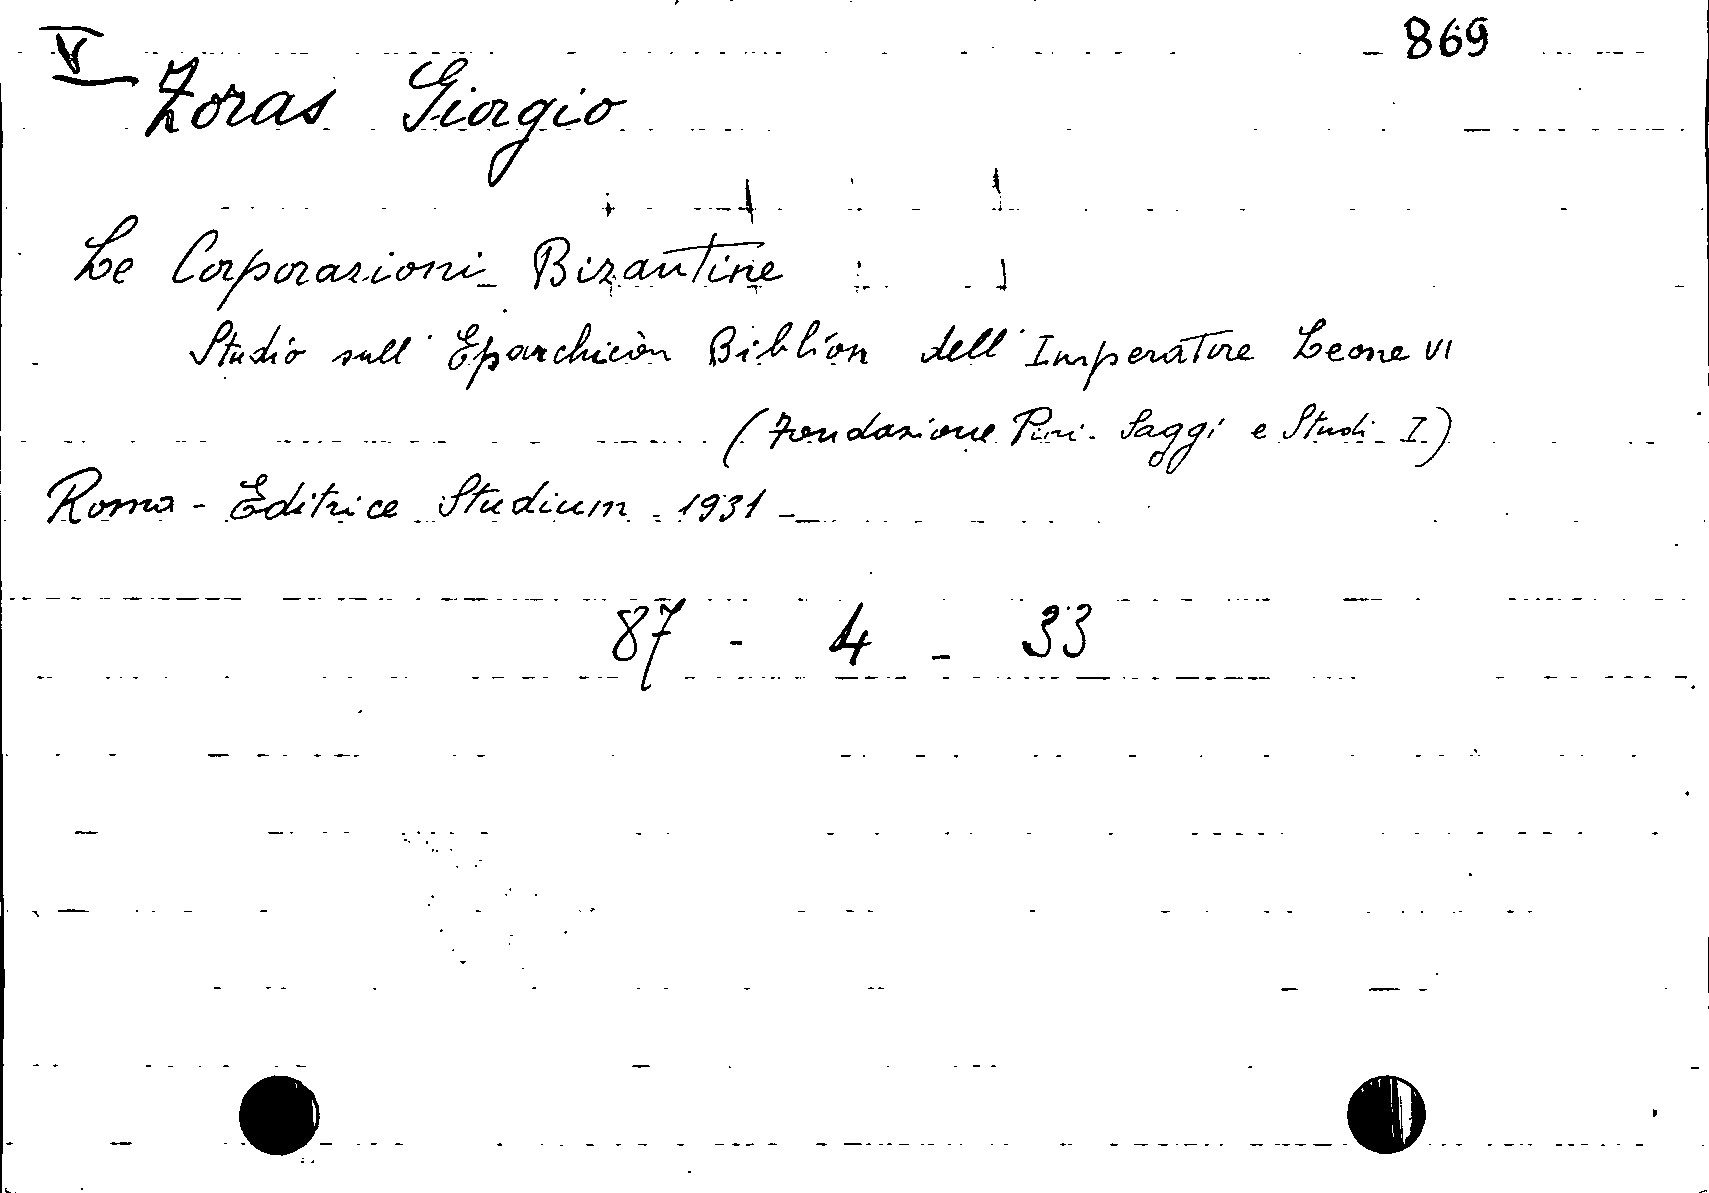 V
869
Zoras Giorgio
Le Corporazioni Bizantine
Studio sull' Eparchicòn Biblion dell' Imperatore Leone VI
(Fondazione Saggi e Studi - I)
Roma - Editrice Studium - 1931 -
87 - 4 - 33